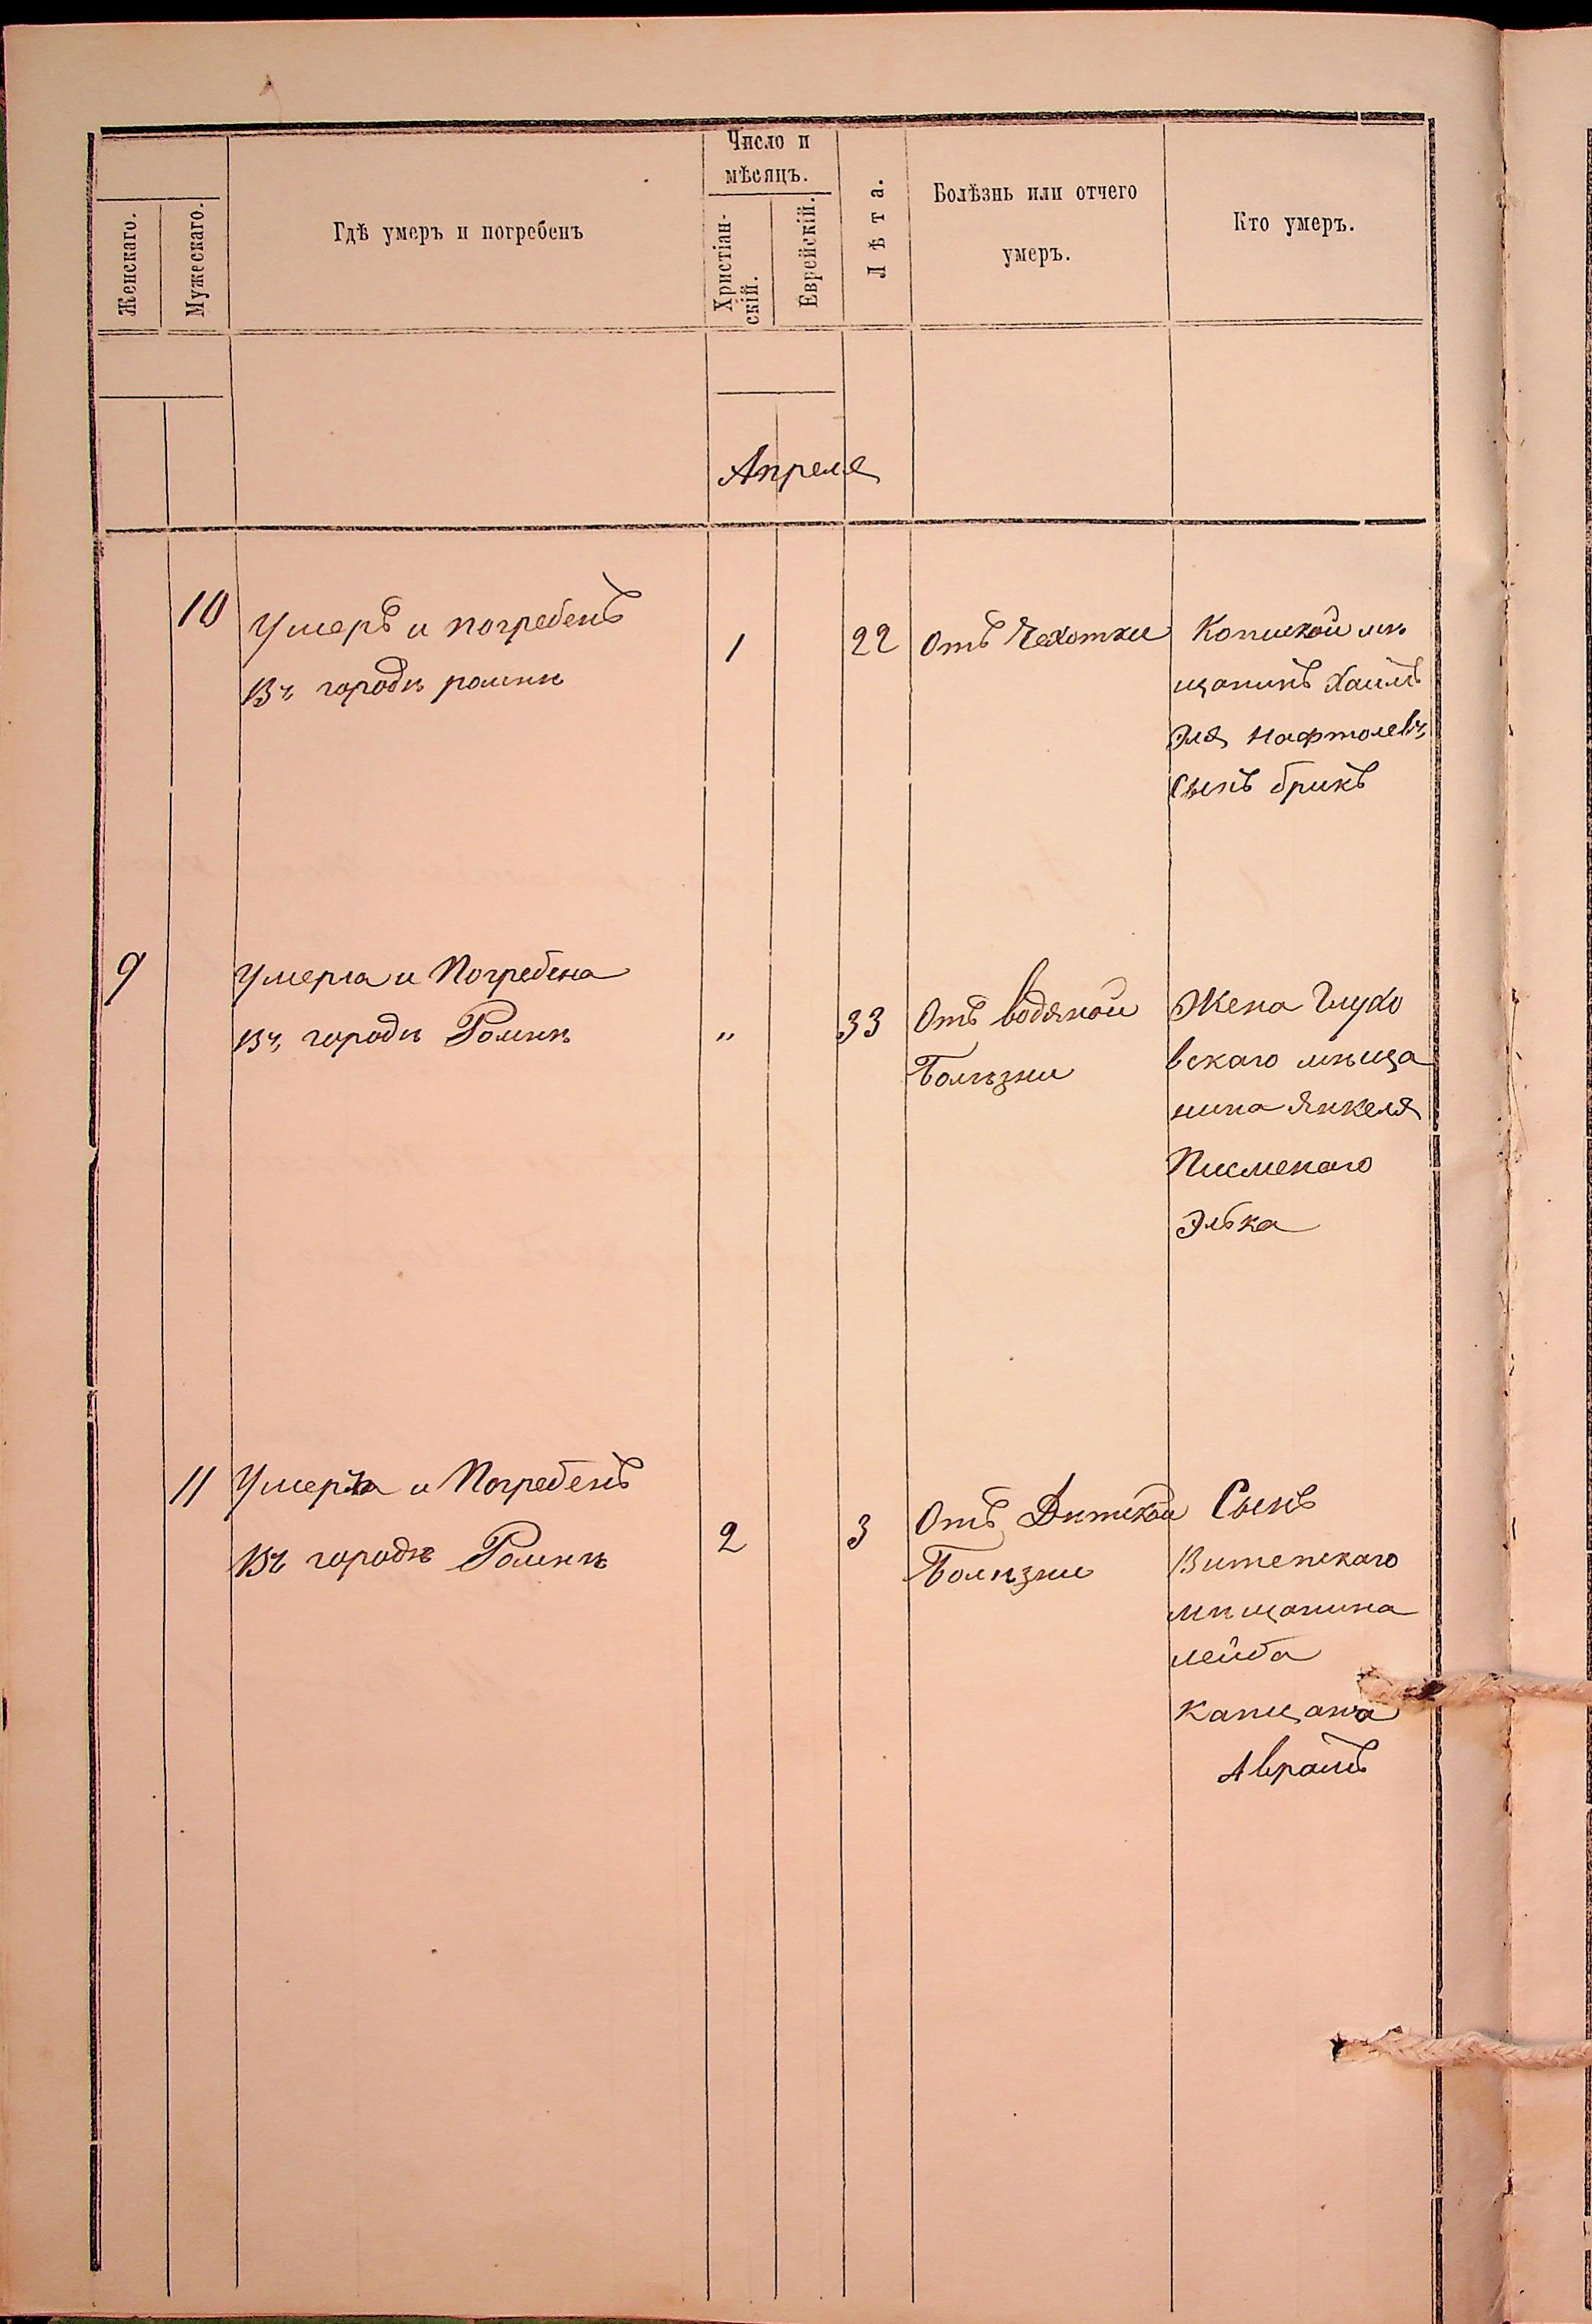 Женскаго.
Мужескаго.
Гдѣ умеръ и погребенъ
Число и
мѣсяцъ.
Христіан-
скій.
Еврейскій.
Лѣта.
Болѣзнь или отчего
умеръ.
Кто умеръ.
Апреля
10
Умеръ и погребенъ
въ городѣ ромнѣ
1
22
Отъ Чехотки
Копиской мѣ
щанинъ Хаимъ
Эля Нафтолевъ
Сынъ брикъ
9
Умерла и Погребена
въ городѣ Ромнѣ
"
33
Отъ водяной
Болѣзни
Жена Глухо
вскаго мѣща
нина Янкеля
Писменаго
Элька
11
и Погребенъ
въ городѣ Ромнѣ
2
3
Отъ Дѣтской
Болѣзни
Сынъ
Витепскаго
мѣщанина
лейба
Капцана
Аврамъ